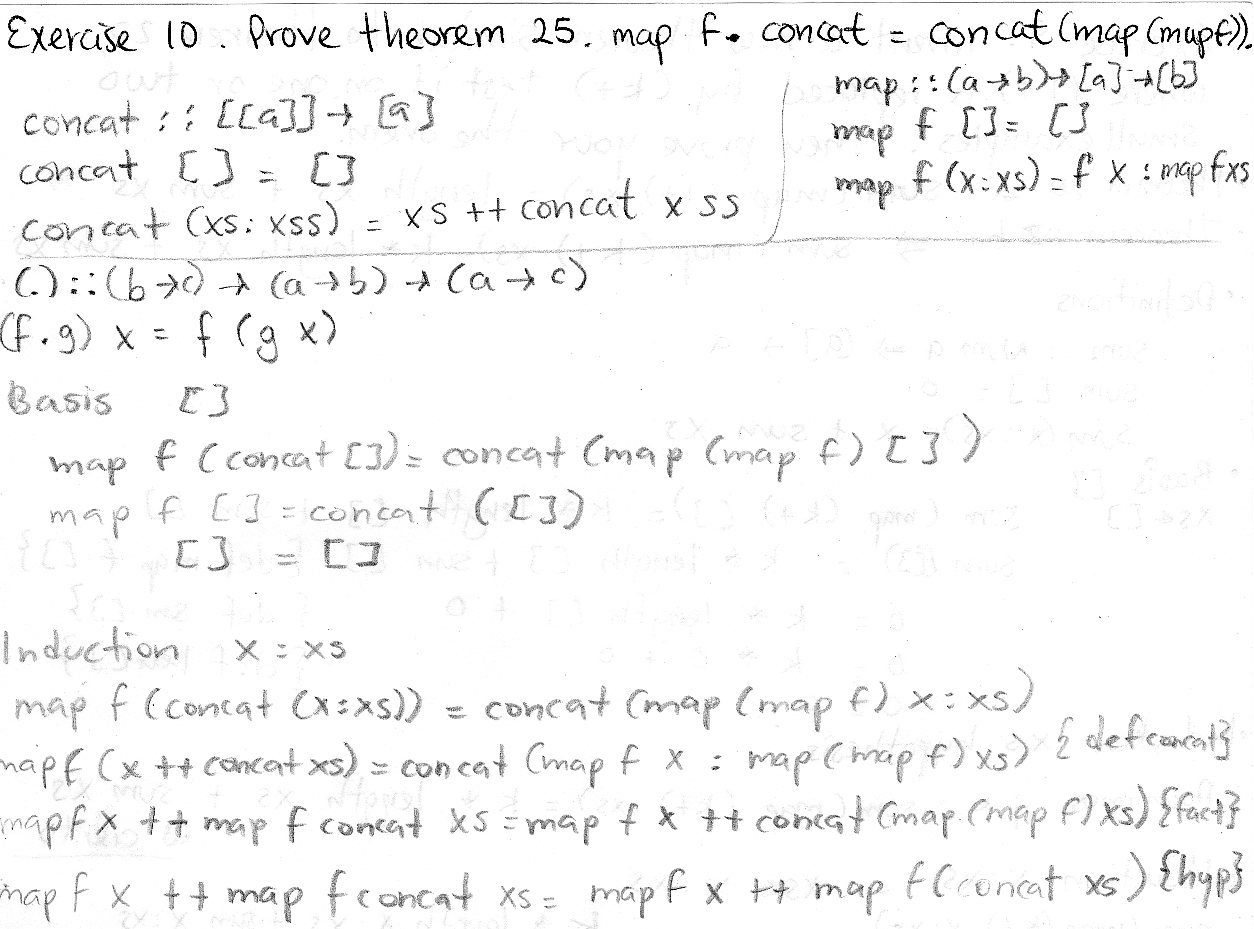 Exercise 10. Prove theorem 25. map f. concat = concat(map(mapf)).
concat :: [[a]] → [a]
concat [] = []
concat (xs: xss) = xs ++ concat xss
map :: (a→b)→[a]→[b]
map f []= []
map f (x:xs) = f x : map f xs
(.)::(b→c) → (a→b) → (a→c)
(f.g) x = f (g x)
Basis []
map f (concat []) = concat (map (map f) [])
map f [] = concat ([])
[] = []
Induction x:xs
map f (concat (x:xs)) = concat (map (map f) x:xs)
mapf (x ++ concat xs) = concat (map f x : map (map f) xs) {def concat}
mapf x ++ map f concat xs = map f x ++ concat (map (map f) xs) {fact}
map f x ++ map f concat xs = mapf x ++ map f(concat xs) {hyp}